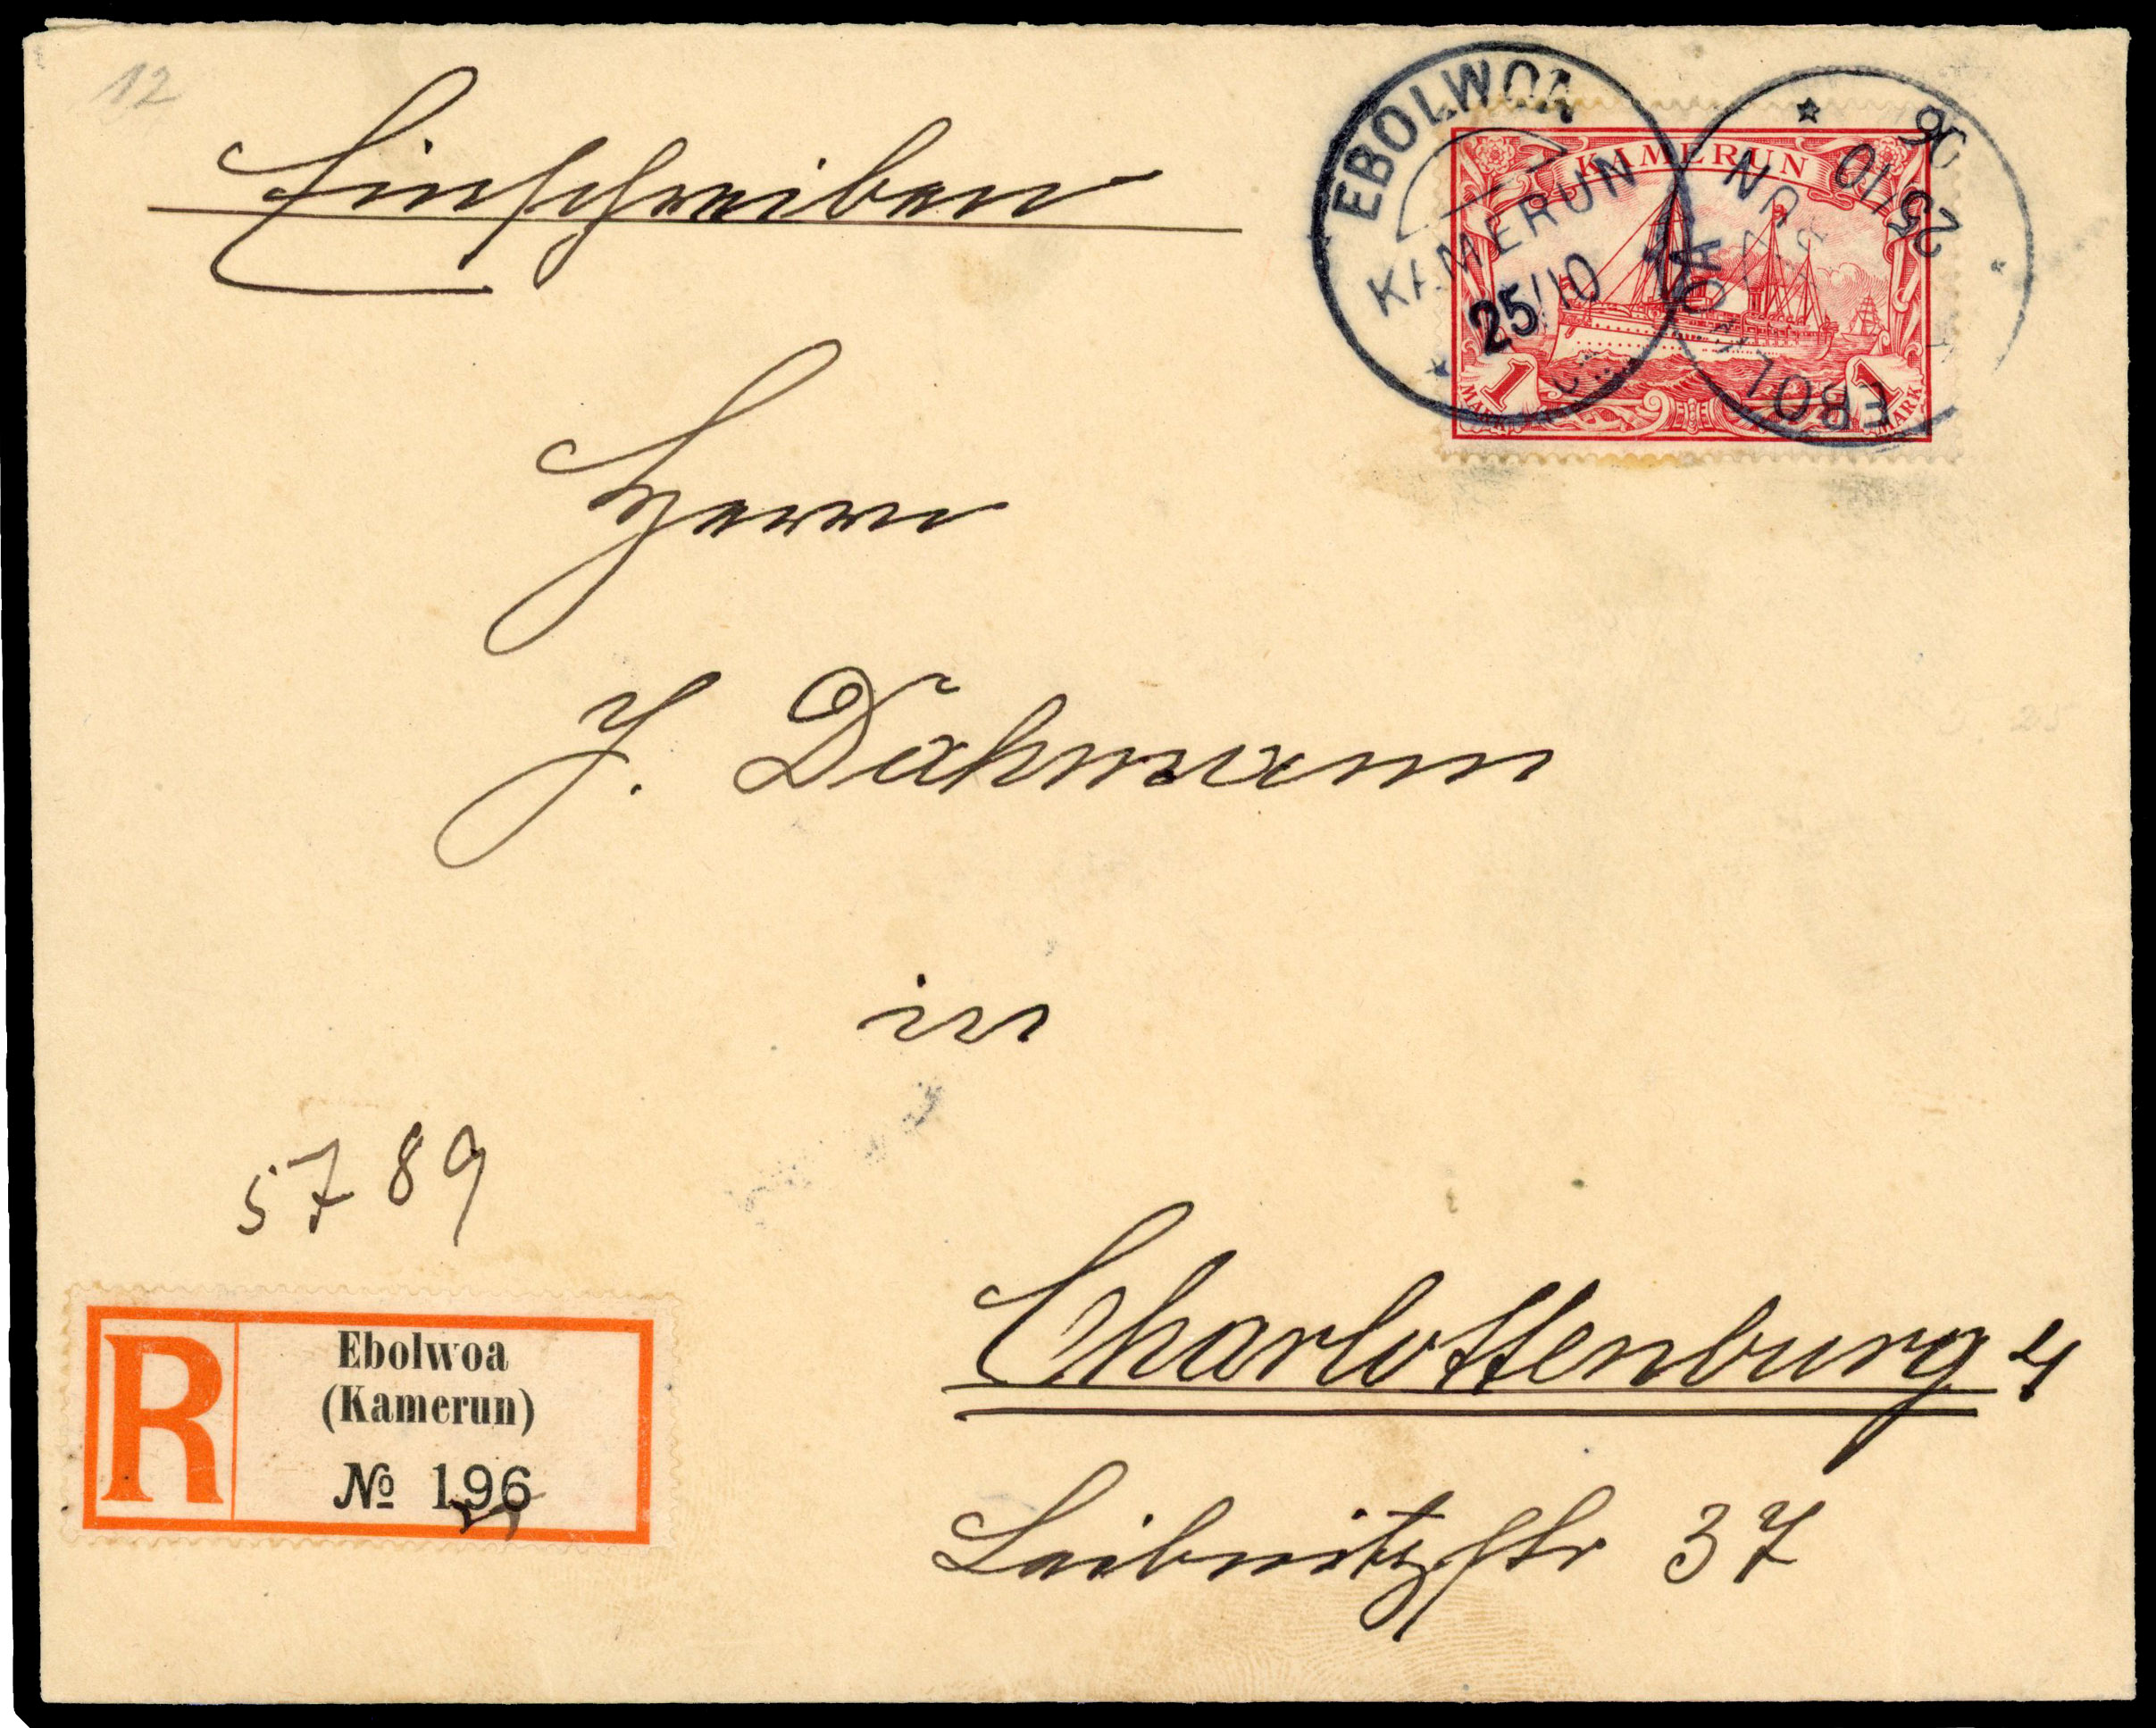 12
Einschreiben
EBOLWOA
KAMERUN
25/10
EBOLWOA
25/10
06
KAMERUN
1
MARK
1
MARK
Herrn
J. Dähmann
in
5789
Charlottenburg 4
Leibnitzstr 37
R
Ebolwoa
(Kamerun)
№ 196